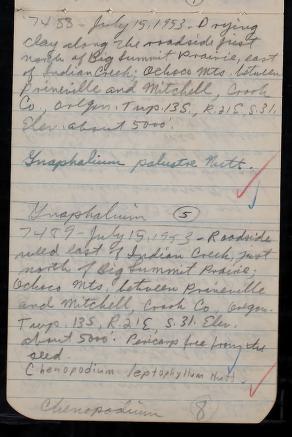 7488 - July 15, 1953 - Drying
clay along the roadside just
north of Big Summit Prairie, east
of Indian Creek; Ochoco Mts. between
Prineville and Mitchell, Crook
Co., Oregon. Twp. 13S, R. 21E, S. 31.
Elev. about 5000'.
Gnaphalium palustre Nutt.
Gnaphalium 5
7489 - July 15, 1953 - Roadside
weed east of Indian Creek, just
north of Big Summit Prairie;
Ochoco Mts. between Prineville
and Mitchell, Crook Co., Oregon.
Twp. 13S, R. 21E, S. 31. Elev.
about 5000'. Pericarp free from the
seed
Chenopodium leptophyllum Nutt.
Chenopodium 8